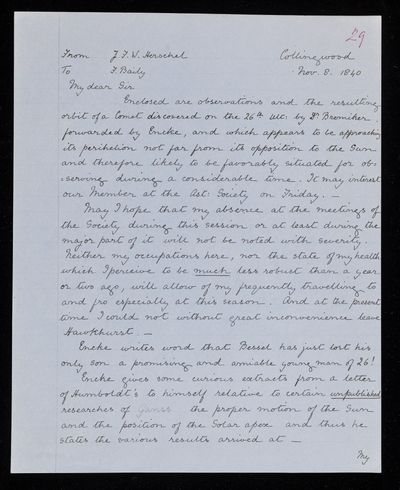 29
From J. F. W. Herschel Collingwood
To F. Baily Nov. 8. 1840
My dear Sir
Enclosed are observations and the resulting
orbit of a Comet discovered on the 26th Ult: by Dr Bremiker
forwarded by Encke, and which appears to be approaching
its perihelion not far from its opposition to the Sun
and therefore likely to be favorably situated for ob-
-serving during a considerable time. It may interest
our Member at the Ast: Society on Friday. —
May I hope that my absence at the meetings of
the Society during this session or at least during the
major part of it will not be noted with severity.
Neither my occupations here, nor the state of my health
which I perceive to be much less robust than a year
or two ago, will allow of my frequently travelling to
and fro especially at this season. And at the present
time I could not without great inconvenience leave
Hawkhurst. —
Encke writes word that Bessel has just lost his
only son a promising and amiable young man of 26!
Encke gives some curious extracts from a letter
of Humboldt's to himself relative to certain unpublished
researches of Gauss the proper motion of the Sun
and the position of the Solar apex and thus he
states the various results arrived at —
My